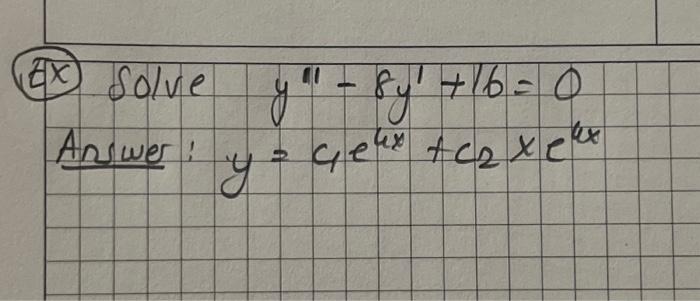 Ex Solve y''' - 8y' + 16 = 0
Answer: y = c₁e^{4x} + c₂ x e^{4x}